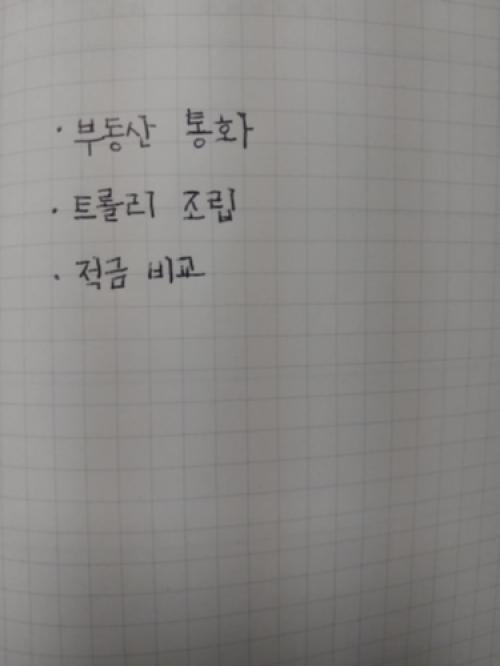 · 부동산 통화
· 트롤리 조립
· 적금 비교